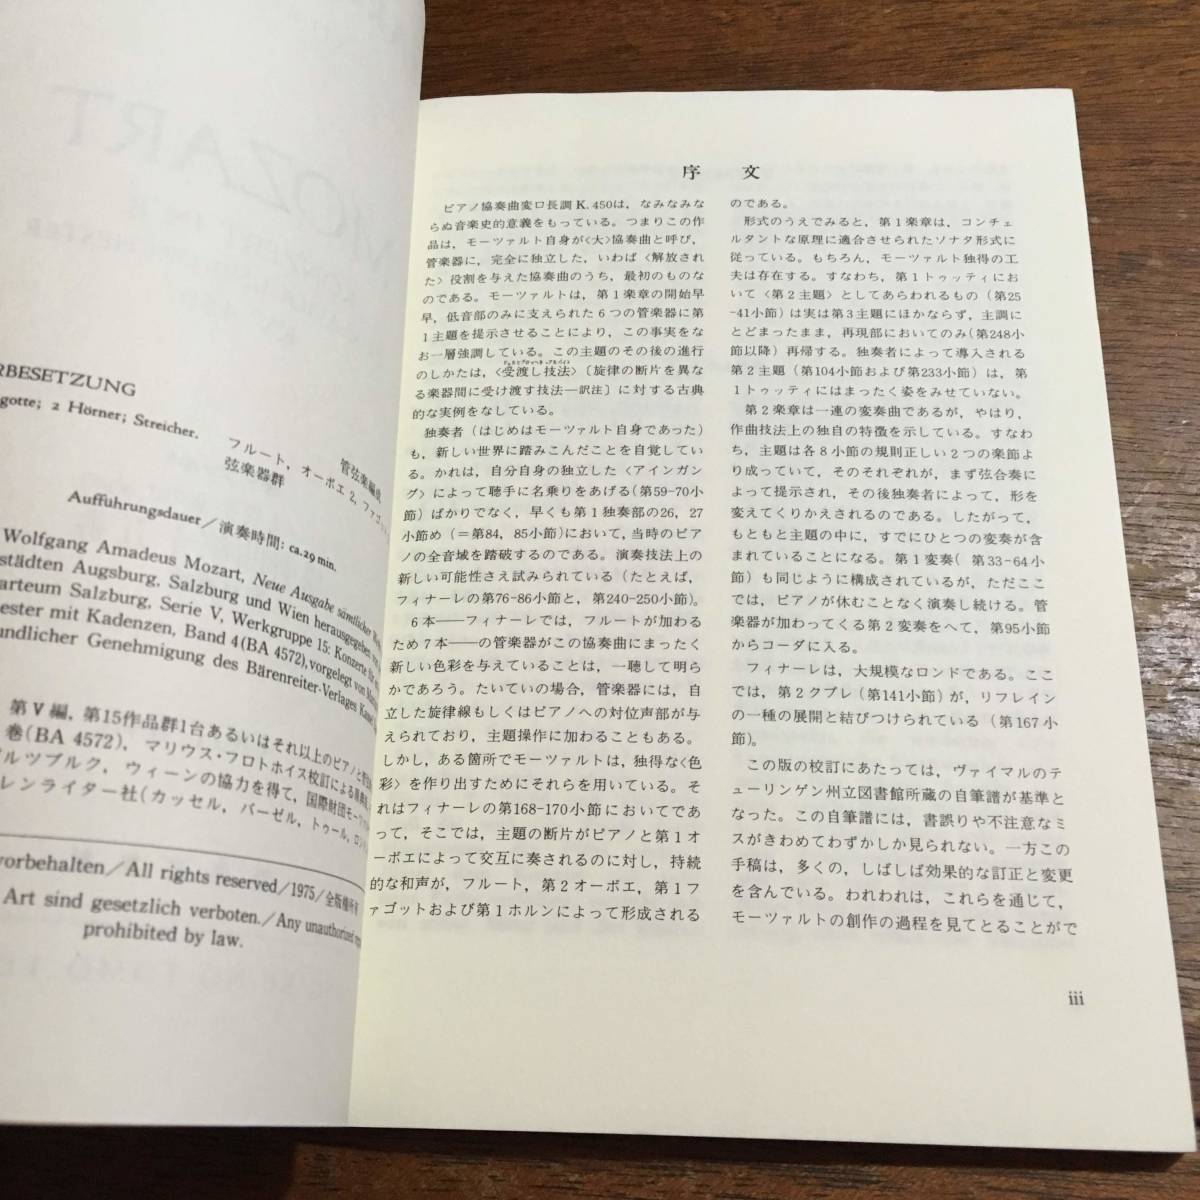 RBESETZUNG
gotte; 2 Hörner; Streicher.
管弦楽編成
フルート, オーボエ 2, ファゴット
弦楽器群
Aufführungsdauer／演奏時間: ca.29 min.
Wolfgang Amadeus Mozart, Neue Ausgabe sämtlicher
städten Augsburg, Salzburg und Wien herausgegeben von
arteum Salzburg, Serie V, Werkgruppe 15: Konzerte für
ester mit Kadenzen, Band 4(BA 4572),vorgelegt von
undlicher Genehmigung des Bärenreiter-Verlages
第Ⅴ編, 第15作品群1台あるいはそれ以上のピアノと
巻(BA 4572), マリウス・フロトホイス校訂による
ルツブルク, ウィーンの協力を得て, 国際財団
レンライター社(カッセル, バーゼル, トゥール,
vorbehalten／All rights reserved／1975／全版権所有
Art sind gesetzlich verboten.／Any unauthorized
prohibited by law.
序　文
ピアノ協奏曲変ロ長調K.450は, なみなみな
らぬ音楽史的意義をもっている。つまりこの作
品は, モーツァルト自身が〈大〉協奏曲と呼び,
管楽器に, 完全に独立した, いわば〈解放され
た〉役割を与えた協奏曲のうち, 最初のものな
のである。モーツァルトは, 第1楽章の開始早
早, 低音部のみに支えられた6つの管楽器に第
1主題を提示させることにより, この事実をな
お一層強調している。この主題のその後の進行
のしかたは,〈受渡し技法〉〔旋律の断片を異な
る楽器間に受け渡す技法―訳注〕に対する古典
的な実例をなしている。
独奏者（はじめはモーツァルト自身であった）
も, 新しい世界に踏みこんだことを自覚してい
る。かれは, 自分自身の独立した〈アインガン
グ〉によって聴手に名乗りをあげる(第59-70小
節）ばかりでなく, 早くも第1独奏部の26, 27
小節め（＝第84, 85小節)において, 当時のピア
ノの全音域を踏破するのである。演奏技法上の
新しい可能性さえ試みられている（たとえば,
フィナーレの第76-86小節と, 第240-250小節)。
6本――フィナーレでは, フルートが加わる
ため7本――の管楽器がこの協奏曲にまったく
新しい色彩を与えていることは, 一聴して明ら
かであろう。たいていの場合, 管楽器には, 自
立した旋律線もしくはピアノへの対位声部が与
えられており, 主題操作に加わることもある。
しかし, ある箇所でモーツァルトは, 独得な〈色
彩〉を作り出すためにそれらを用いている。そ
れはフィナーレの第168-170小節においてであ
って, そこでは, 主題の断片がピアノと第1オ
ーボエによって交互に奏されるのに対し, 持続
的な和声が, フルート, 第2オーボエ, 第1フ
ァゴットおよび第1ホルンによって形成される
のである。
形式のうえでみると, 第1楽章は, コンチェ
ルタントな原理に適合させられたソナタ形式に
従っている。もちろん, モーツァルト独得の工
夫は存在する。すなわち, 第1トゥッティにお
いて〈第2主題〉としてあらわれるもの（第25
-41小節）は実は第3主題にほかならず, 主調に
とどまったまま, 再現部においてのみ(第248小
節以降）再帰する。独奏者によって導入される
第2主題（第104小節および第233小節）は, 第
1トゥッティにはまったく姿をみせていない。
第2楽章は一連の変奏曲であるが, やはり,
作曲技法上の独自の特徴を示している。すなわ
ち, 主題は各8小節の規則正しい2つの楽節よ
り成っていて, そのそれぞれが, まず弦合奏に
よって提示され, その後独奏者によって, 形を
変えてくりかえされるのである。したがって,
もともと主題の中に, すでにひとつの変奏が含
まれていることになる。第1変奏( 第33-64小
節）も同じように構成されているが, ただここ
では, ピアノが休むことなく演奏し続ける。管
楽器が加わってくる第2変奏をへて, 第95小節
からコーダに入る。
フィナーレは, 大規模なロンドである。ここ
では, 第2クプレ（第141小節）が, リフレイン
の一種の展開と結びつけられている（第167小
節)。
この版の校訂にあたっては, ヴァイマルのテ
ューリンゲン州立図書館所蔵の自筆譜が基準と
なった。この自筆譜には, 書誤りや不注意なミ
スがきわめてわずかしか見られない。一方この
手稿は, 多くの, しばしば効果的な訂正と変更
を含んでいる。われわれは, これらを通じて,
モーツァルトの創作の過程を見てとることがで
iii